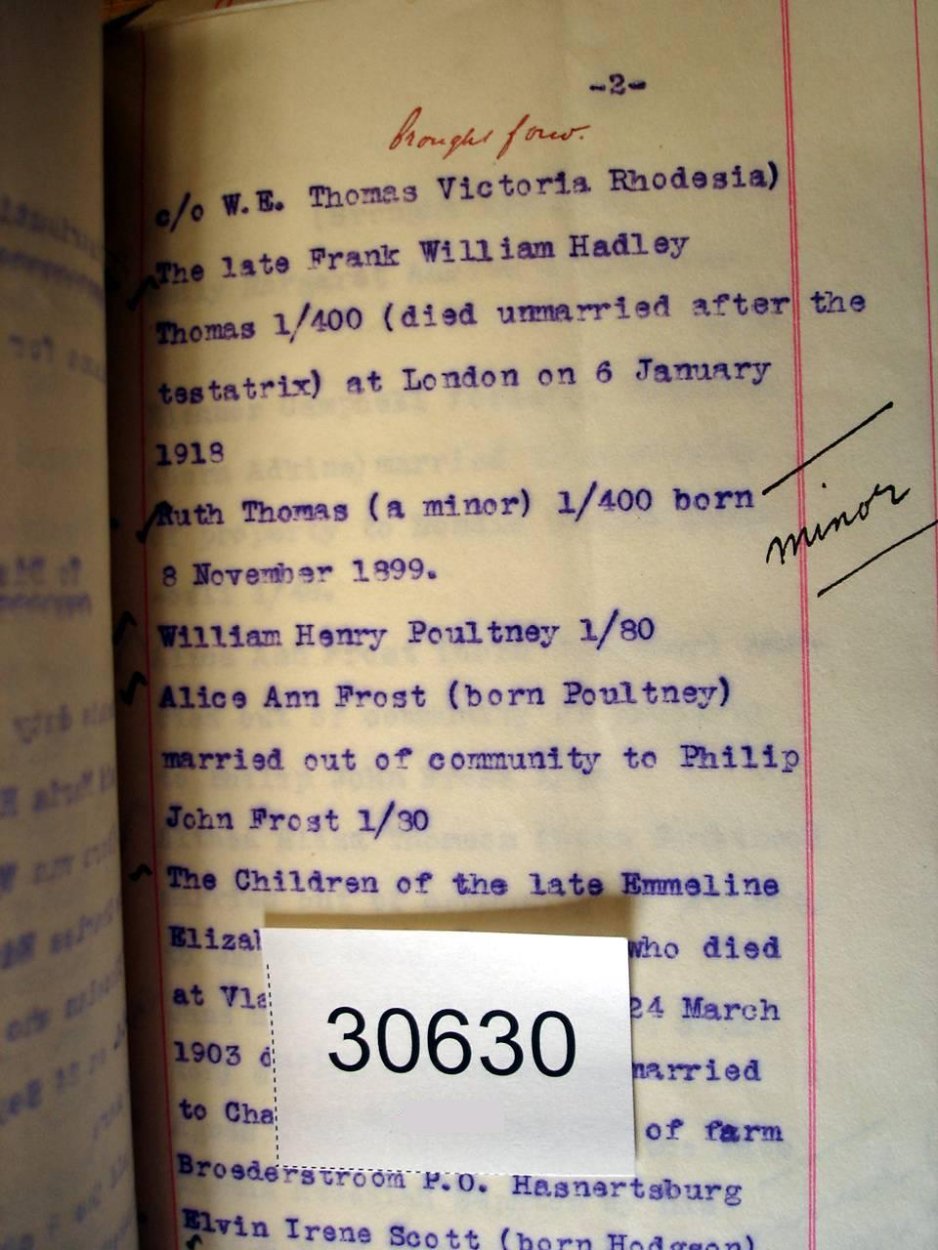 -2-
brought forw.
c/o W.E. Thomas Victoria Rhodesia)
The late Frank William Hadley
Thomas 1/400 (died unmarried after the
testatrix) at London on 6 January
1918
Ruth Thomas (a minor) 1/400 born
minor
8 November 1899.
William Henry Poultney 1/80
Alice Ann Frost (born Poultney)
married out of community to Philip
John Frost 1/80
The Children of the late Emmeline
who died
at 24 March
1903 married
to of farm
30630
Broederstroom P.O. Haenertsburg
Elvin Irene Scott (born Hodgson)